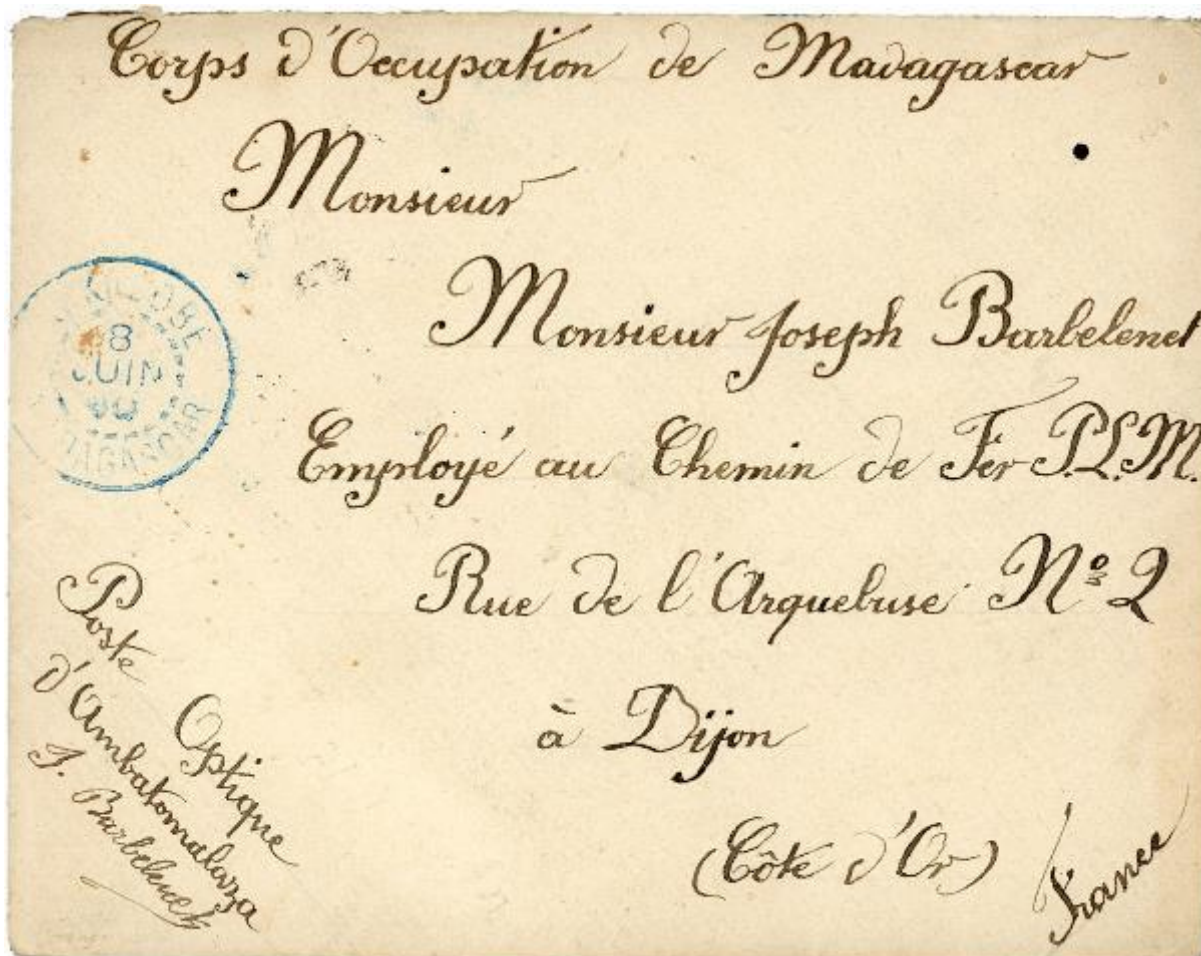 Corps d'Occupation de Madagascar
Monsieur
Monsieur Joseph Barbelenet
Employé au Chemin de Fer P.L.M.
Rue de l'Arquebuse Nº 2
à Dijon
(Côte d'Or)
France
8
JUIN
Poste Optique
d'Ambatomalaza
J. Barbelenet